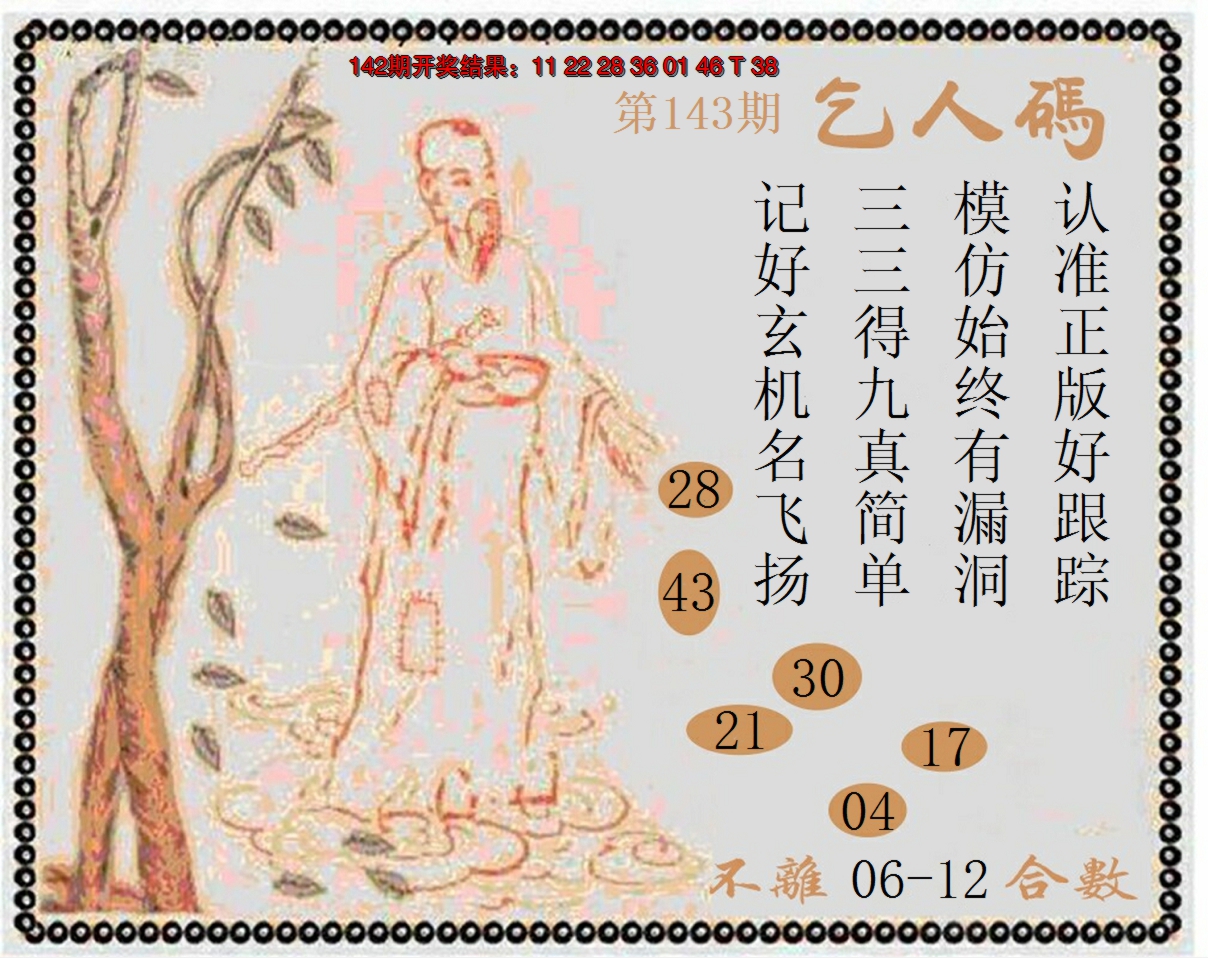 142期开奖结果：11 22 28 36 01 46 T 38
第143期 乞人碼
认准正版好跟踪
模仿始终有漏洞
三三得九真简单
记好玄机名飞扬
28
43
30
21
17
04
不離 06-12 合數